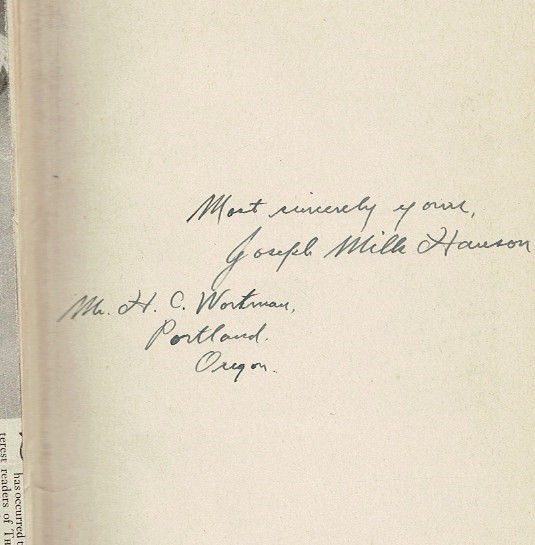 Most sincerely yours,
Joseph Mills Hanson
Mr. H. C. Wortman,
Portland.
Oregon.
has occurred t
terest readers of TH